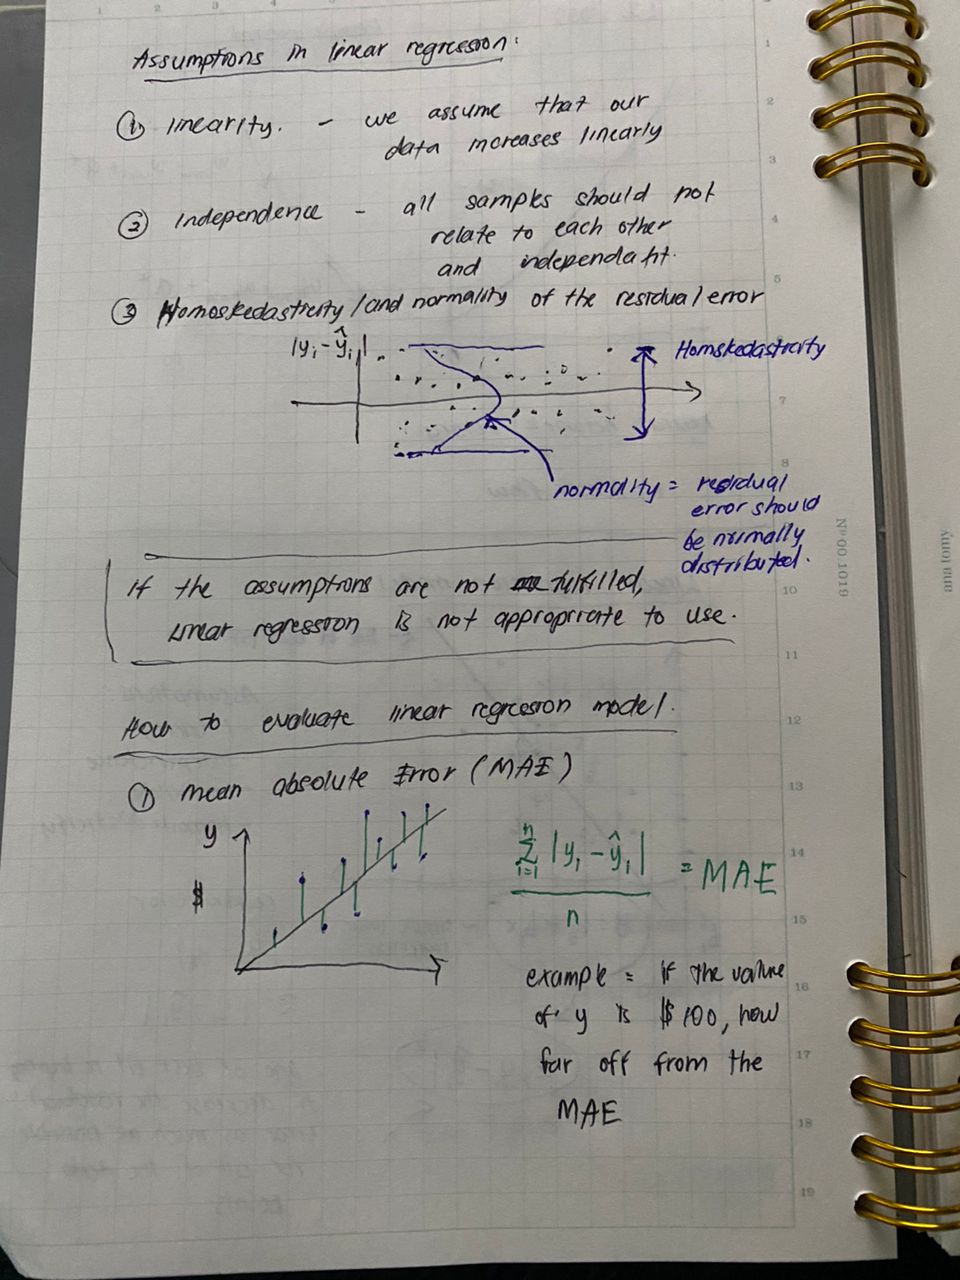 Assumptions in linear regression:
① linearity. - we assume that our
data increases linearly
② Independence - all samples should not
relate to each other
and independaht.
③ Homoskedasticity /and normality of the residual error
|yᵢ - ŷᵢ|
Homskedasticity
normality = residual
error should
be normally
distributed.
If the assumptions are not fulfilled,
Linear regression is not appropriate to use.
How to evaluate linear regression model.
① mean absolute Error (MAE)
y
$
∑ᵢ₌₁ⁿ |yᵢ - ŷᵢ| / n = MAE
example = if the value
of y is $100, how
far off from the
MAE
1
2
3
4
5
7
8
10
11
12
13
14
15
16
17
18
19
Nº00.1019
anatomy